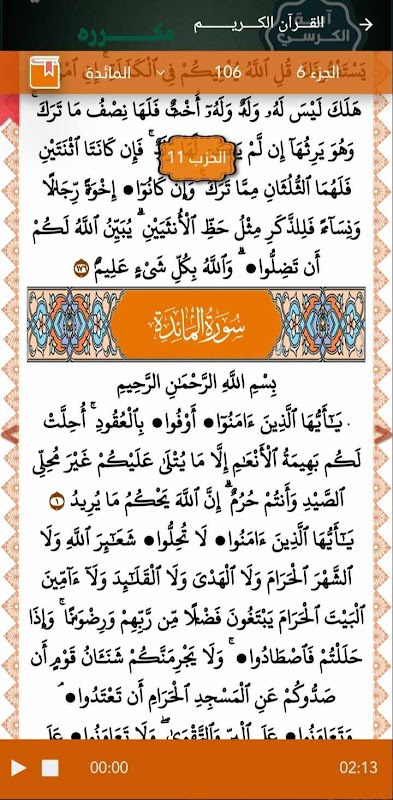 القرآن الكريم
آية الكرسي
مكررة
الجزء 6
106
المائدة
هَلَكَ لَيْسَ لَهُۥ وَلَدٌ وَلَهُۥٓ أُخْتٌ فَلَهَا نِصْفُ مَا تَرَكَ ۚ
الحزب 11
وَهُوَ يَرِثُهَآ إِن لَّمْ ۚ فَإِن كَانَتَا ٱثْنَتَيْنِ
فَلَهُمَا ٱلثُّلُثَانِ مِمَّا تَرَكَ ۚ وَإِن كَانُوٓا۟ إِخْوَةً رِّجَالًا
وَنِسَآءً فَلِلذَّكَرِ مِثْلُ حَظِّ ٱلْأُنثَيَيْنِ ۗ يُبَيِّنُ ٱللَّهُ لَكُمْ
أَن تَضِلُّوا۟ ۗ وَٱللَّهُ بِكُلِّ شَىْءٍ عَلِيمٌۢ ١٧٦
سُورَةُ المَائِدَةِ
بِسْمِ ٱللَّهِ ٱلرَّحْمَٰنِ ٱلرَّحِيمِ
يَٰٓأَيُّهَا ٱلَّذِينَ ءَامَنُوٓا۟ أَوْفُوا۟ بِٱلْعُقُودِ ۚ أُحِلَّتْ
لَكُم بَهِيمَةُ ٱلْأَنْعَٰمِ إِلَّا مَا يُتْلَىٰ عَلَيْكُمْ غَيْرَ مُحِلِّى
ٱلصَّيْدِ وَأَنتُمْ حُرُمٌ ۗ إِنَّ ٱللَّهَ يَحْكُمُ مَا يُرِيدُ ١
يَٰٓأَيُّهَا ٱلَّذِينَ ءَامَنُوا۟ لَا تُحِلُّوا۟ شَعَٰٓئِرَ ٱللَّهِ وَلَا
ٱلشَّهْرَ ٱلْحَرَامَ وَلَا ٱلْهَدْىَ وَلَا ٱلْقَلَٰٓئِدَ وَلَآ ءَآمِّينَ
ٱلْبَيْتَ ٱلْحَرَامَ يَبْتَغُونَ فَضْلًا مِّن رَّبِّهِمْ وَرِضْوَٰنًا ۚ وَإِذَا
حَلَلْتُمْ فَٱصْطَادُوا۟ ۚ وَلَا يَجْرِمَنَّكُمْ شَنَـَٔانُ قَوْمٍ أَن
صَدُّوكُمْ عَنِ ٱلْمَسْجِدِ ٱلْحَرَامِ أَن تَعْتَدُوا۟ ۘ
وَتَعَاوَنُوا۟ عَلَى ٱلْبِرِّ وَٱلتَّقْوَىٰ ۖ وَلَا تَعَاوَنُوا۟ عَلَى
00:00
02:13